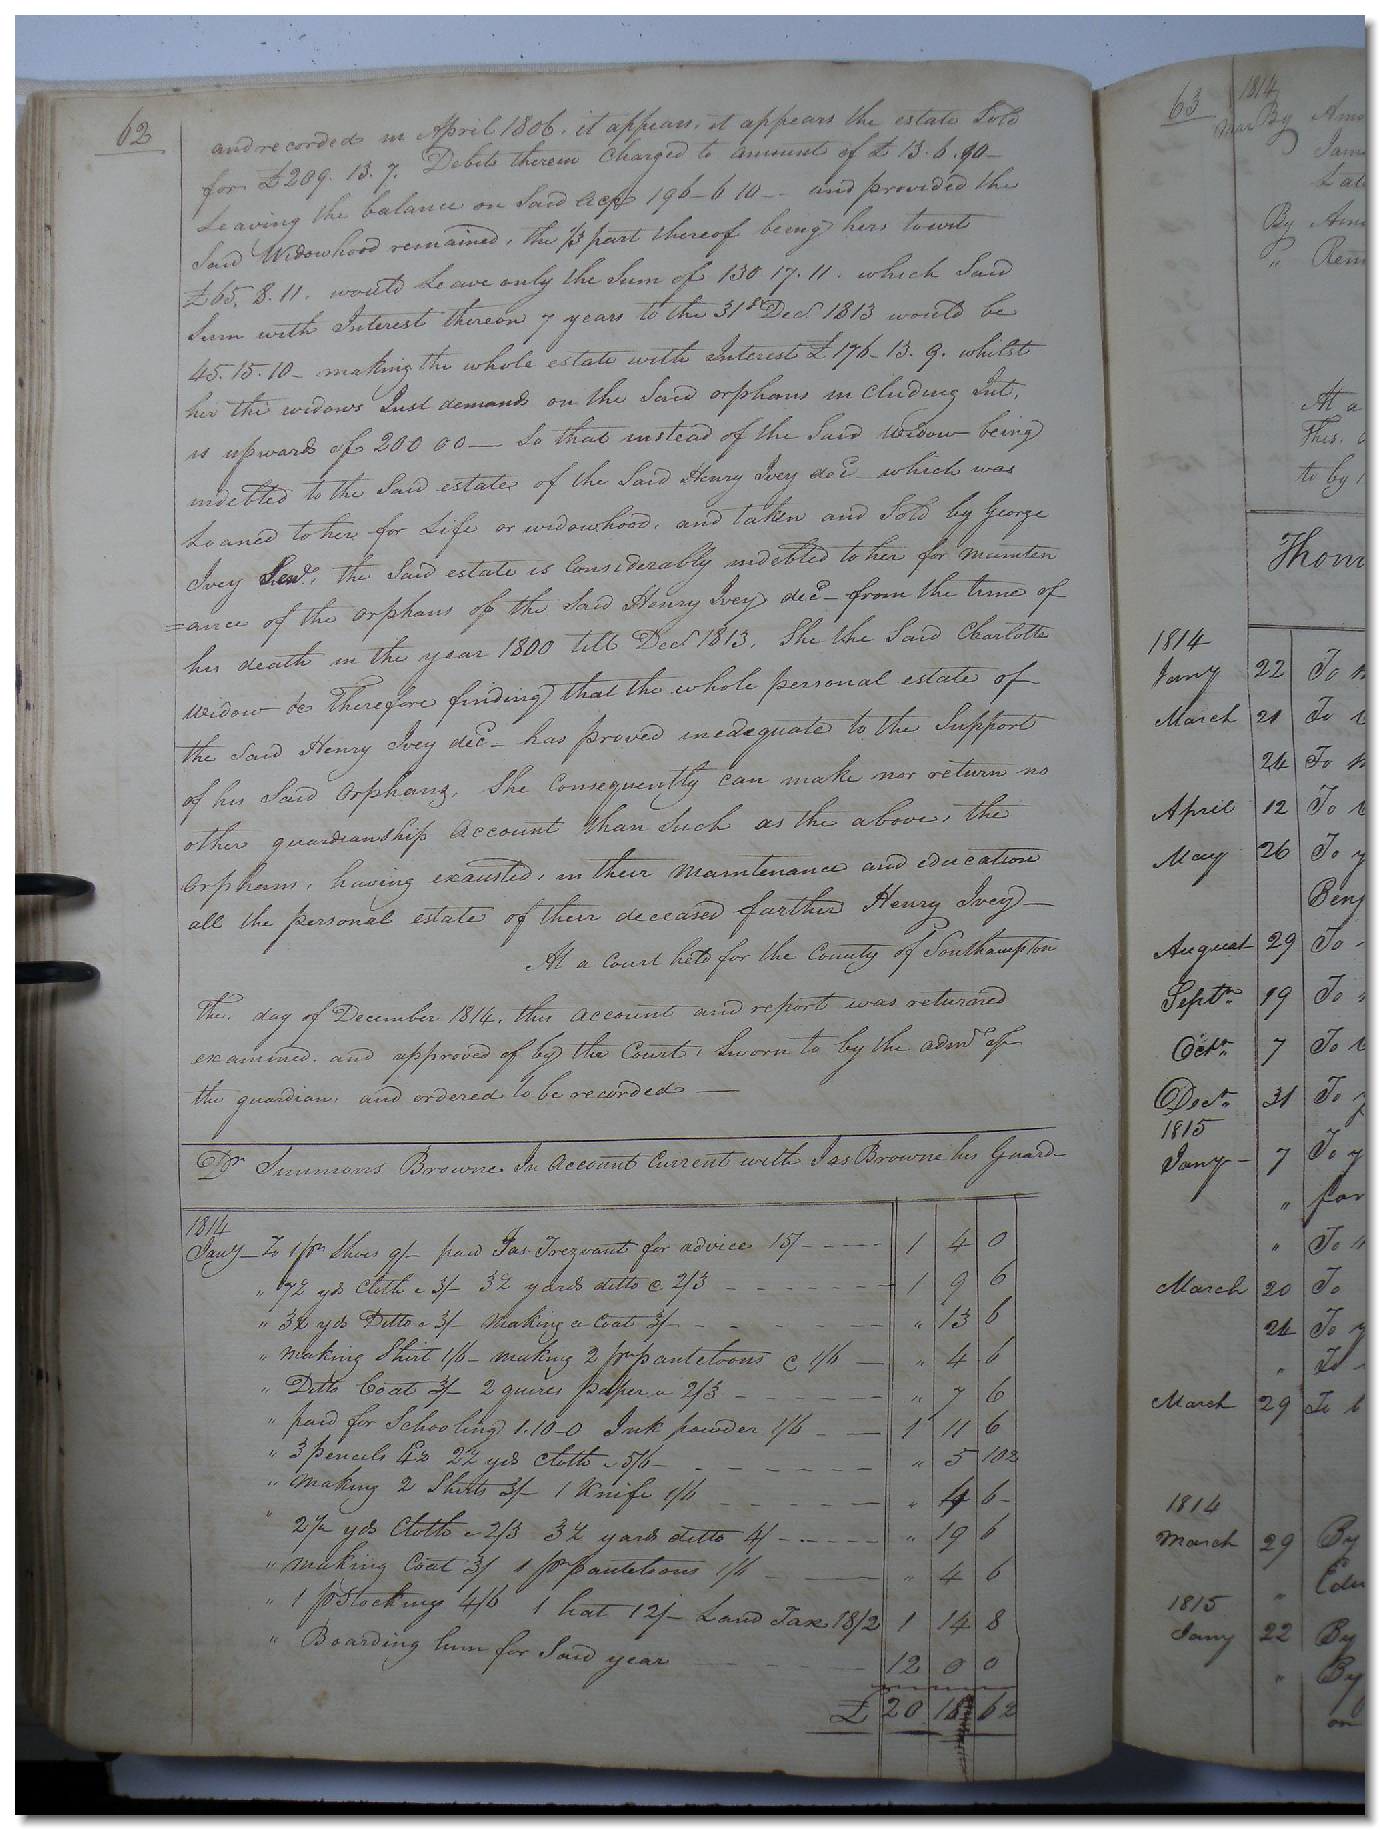 62
and recorded in April 1806. it appears, it appears the estate Sold
for £209. 13. 7. Debits therein Charged to amount of £ 13. 6. 90 –
Leaving the balance on Said acct 196 – 6 10 – and provided the
Said Widowhood remained, the ⅓ part thereof being hers towit
£65. 8. 11. would Leave only the Sum of 130 17. 11. which Said
Sum with Interest thereon 7 years to the 31st Decr 1813 would be
45. 15. 10 – making the whole estate with Interest £ 176 – 13. 9. whilst
her the widows Just demands on the Said orphans in cluding Int.
is upwards of 200 00 – So that instead of the Said Widow being
indebted to the Said estate of the Said Henry Ivey decd which was
Loaned to her for Life or widowhood, and taken and Sold by George
Ivey Senr. the Said estate is Considerably indebted to her for mainten
=ance of the orphans of the Said Henry Ivey decd – from the time of
his death in the year 1800 till Decr 1813. She the Said Charlotte
Widow &c Therefore finding that the whole personal estate of
the Said Henry Ivey decd – has proved inadequate to the Support
of his Said Orphans, She Consequently can make nor return no
other guardianship Account than Such as the above, the
Orphans, having exausted, in their maintenance and education
all the personal estate of their deceased farther Henry Ivey –
At a Court held for the County of Southampton
The. day of December 1814. this account and report was returned
examined. and approved of by the Court, Sworn to by the admr of
the guardian, and ordered to be recorded –
Dr Simmons Browne In Account Current with Jas Browne his Guard –
1814
Jany – To 1 pr Shoes 9/– paid Jas Trezvant for advice 15/ – 1 4 0
" 7½ yds Cloth @ 3/– 3½ yards ditto @ 2/3 – 1 9 6
" 3½ yds Ditto @ 3/– Making a Coat 3/– " 13 6
" Making Shirt 1/6 – making 2 pr pantetoons @ 1/6 – " 4 6
" Ditto Coat 3/– 2 quires paper @ 2/3 – " 7 6
" paid for Schooling 1. 10 – 0 Ink powder 1/6 – 1 11 6
" 3 pencels 4½ 2½ yds Cloth @ 5/6 – " 5 10½
" Making 2 Shirts 3/– 1 Knife 1/6 – " 4 6 –
" yds Cloth @ 2/3 3½ yards ditto 4/ – " 19 6
" making Coat 3/ 1 pr pantetoons 1/6 – " 4 6
" 1 pr Stockings 4/6 1 hat 12/– Land Tax 18/2 1 14 8
" Boarding him for Said year 12 0 0
£ 20 18 6½
63
1814
Mar By
By
" 
At a
This.
to by
Thom
1814
Jany 22 To
March 21 To
24 To
April 12 To
May 26 To y
Benj
August 29 To
Septr 19 To
Octr 7 To
Decr 31 To
1815
Jany – 7 To y
" for
" To
March 20 To
24 To y
" To
March 29 To
1814
March 29 By
" Edw
1815
Jany 22 By
" By
on